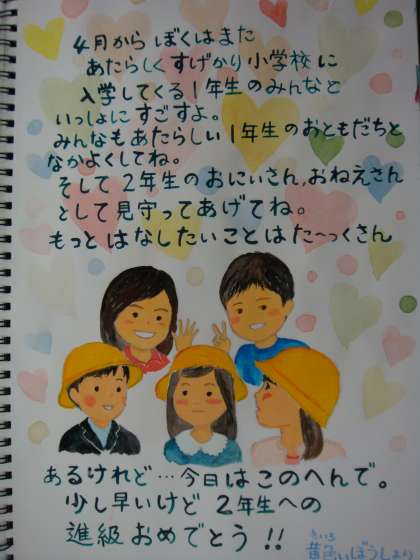 4月から ぼくはまた
あたらしく すげかり小学校に
入学してくる1年生のみんなと
いっしょにすごすよ。
みんなもあたらしい1年生のおともだちと
なかよくしてね。
そして2年生のおにいさん、おねえさん
として見守ってあげてね。
もっとはなしたいことはた〜っくさん
あるけれど…今日はこのへんで。
少し早いけど 2年生への
進級おめでとう!!
きいろ
黄色いぼうしより